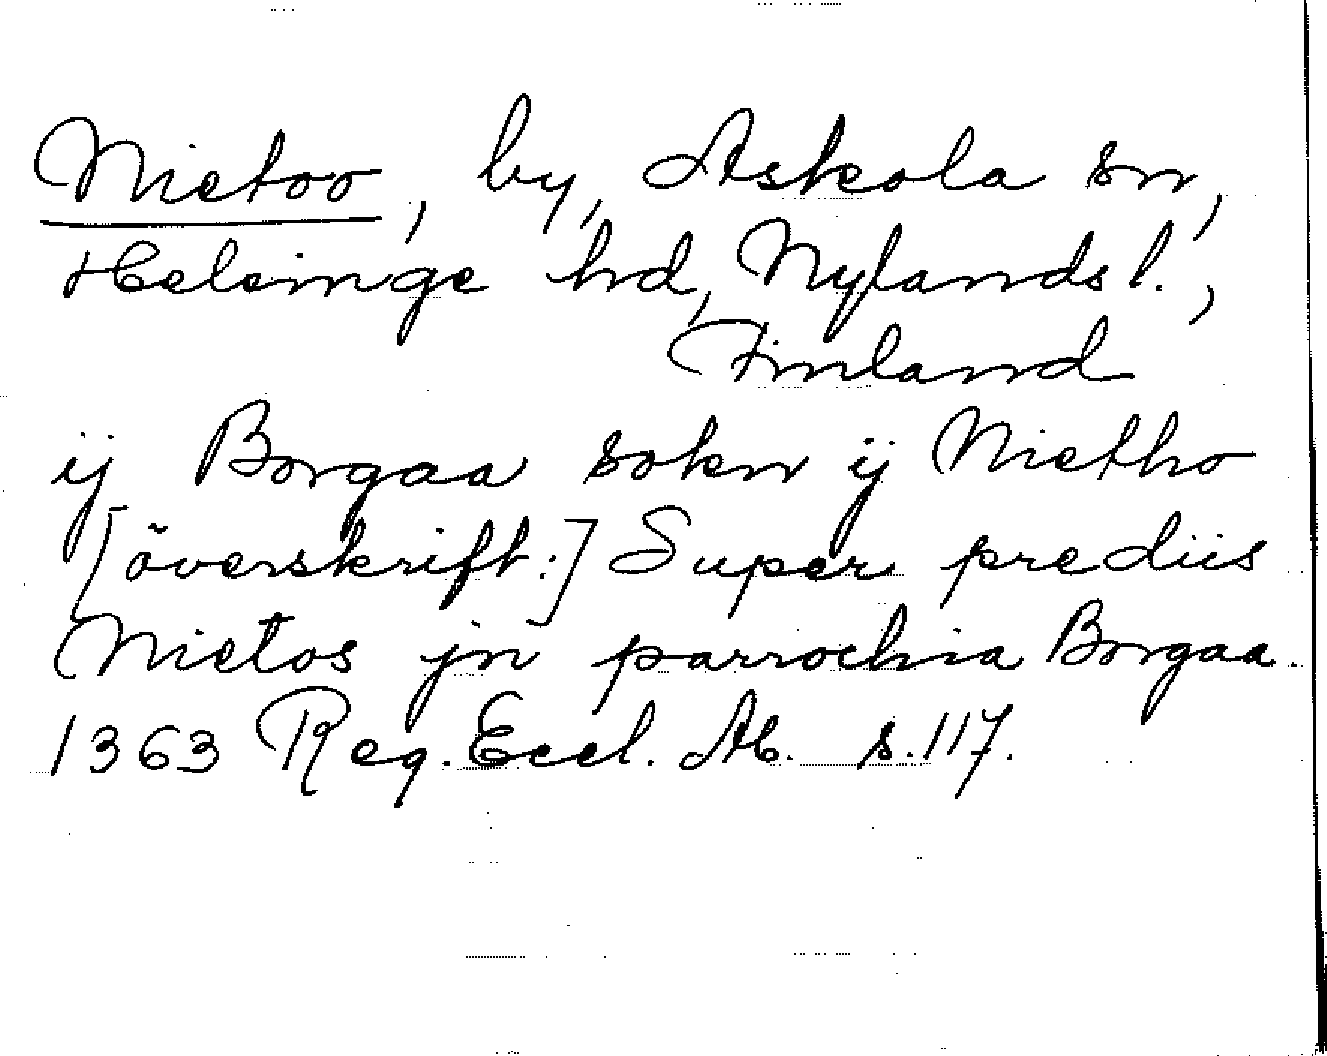 Nietoo, by, Askola sn,
Helsinge hd, Nylands l.,
Finland
ij Borgaa sokn ij Nietho
[överskrift:] Super prediis
Nietos jn parrochia Borgaa.
1363 Reg. Eccl. Ab. s. 117.